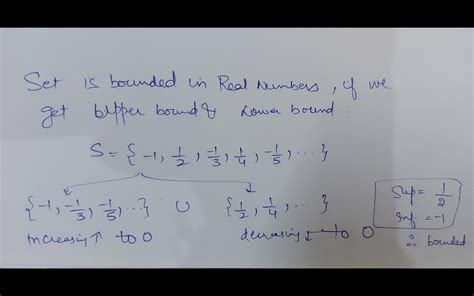 Set is bounded in Real Numbers, if we
get Upper bound & Lower bound.
S = { -1, 1/2, -1/3, 1/4, -1/5, ... }
{-1, -1/3, -1/5, ...} ∪ {1/2, 1/4, ...}
increasing ↑ to 0 decreasing ↓ to 0
Sup = 1/2
Inf = -1
∴ bounded